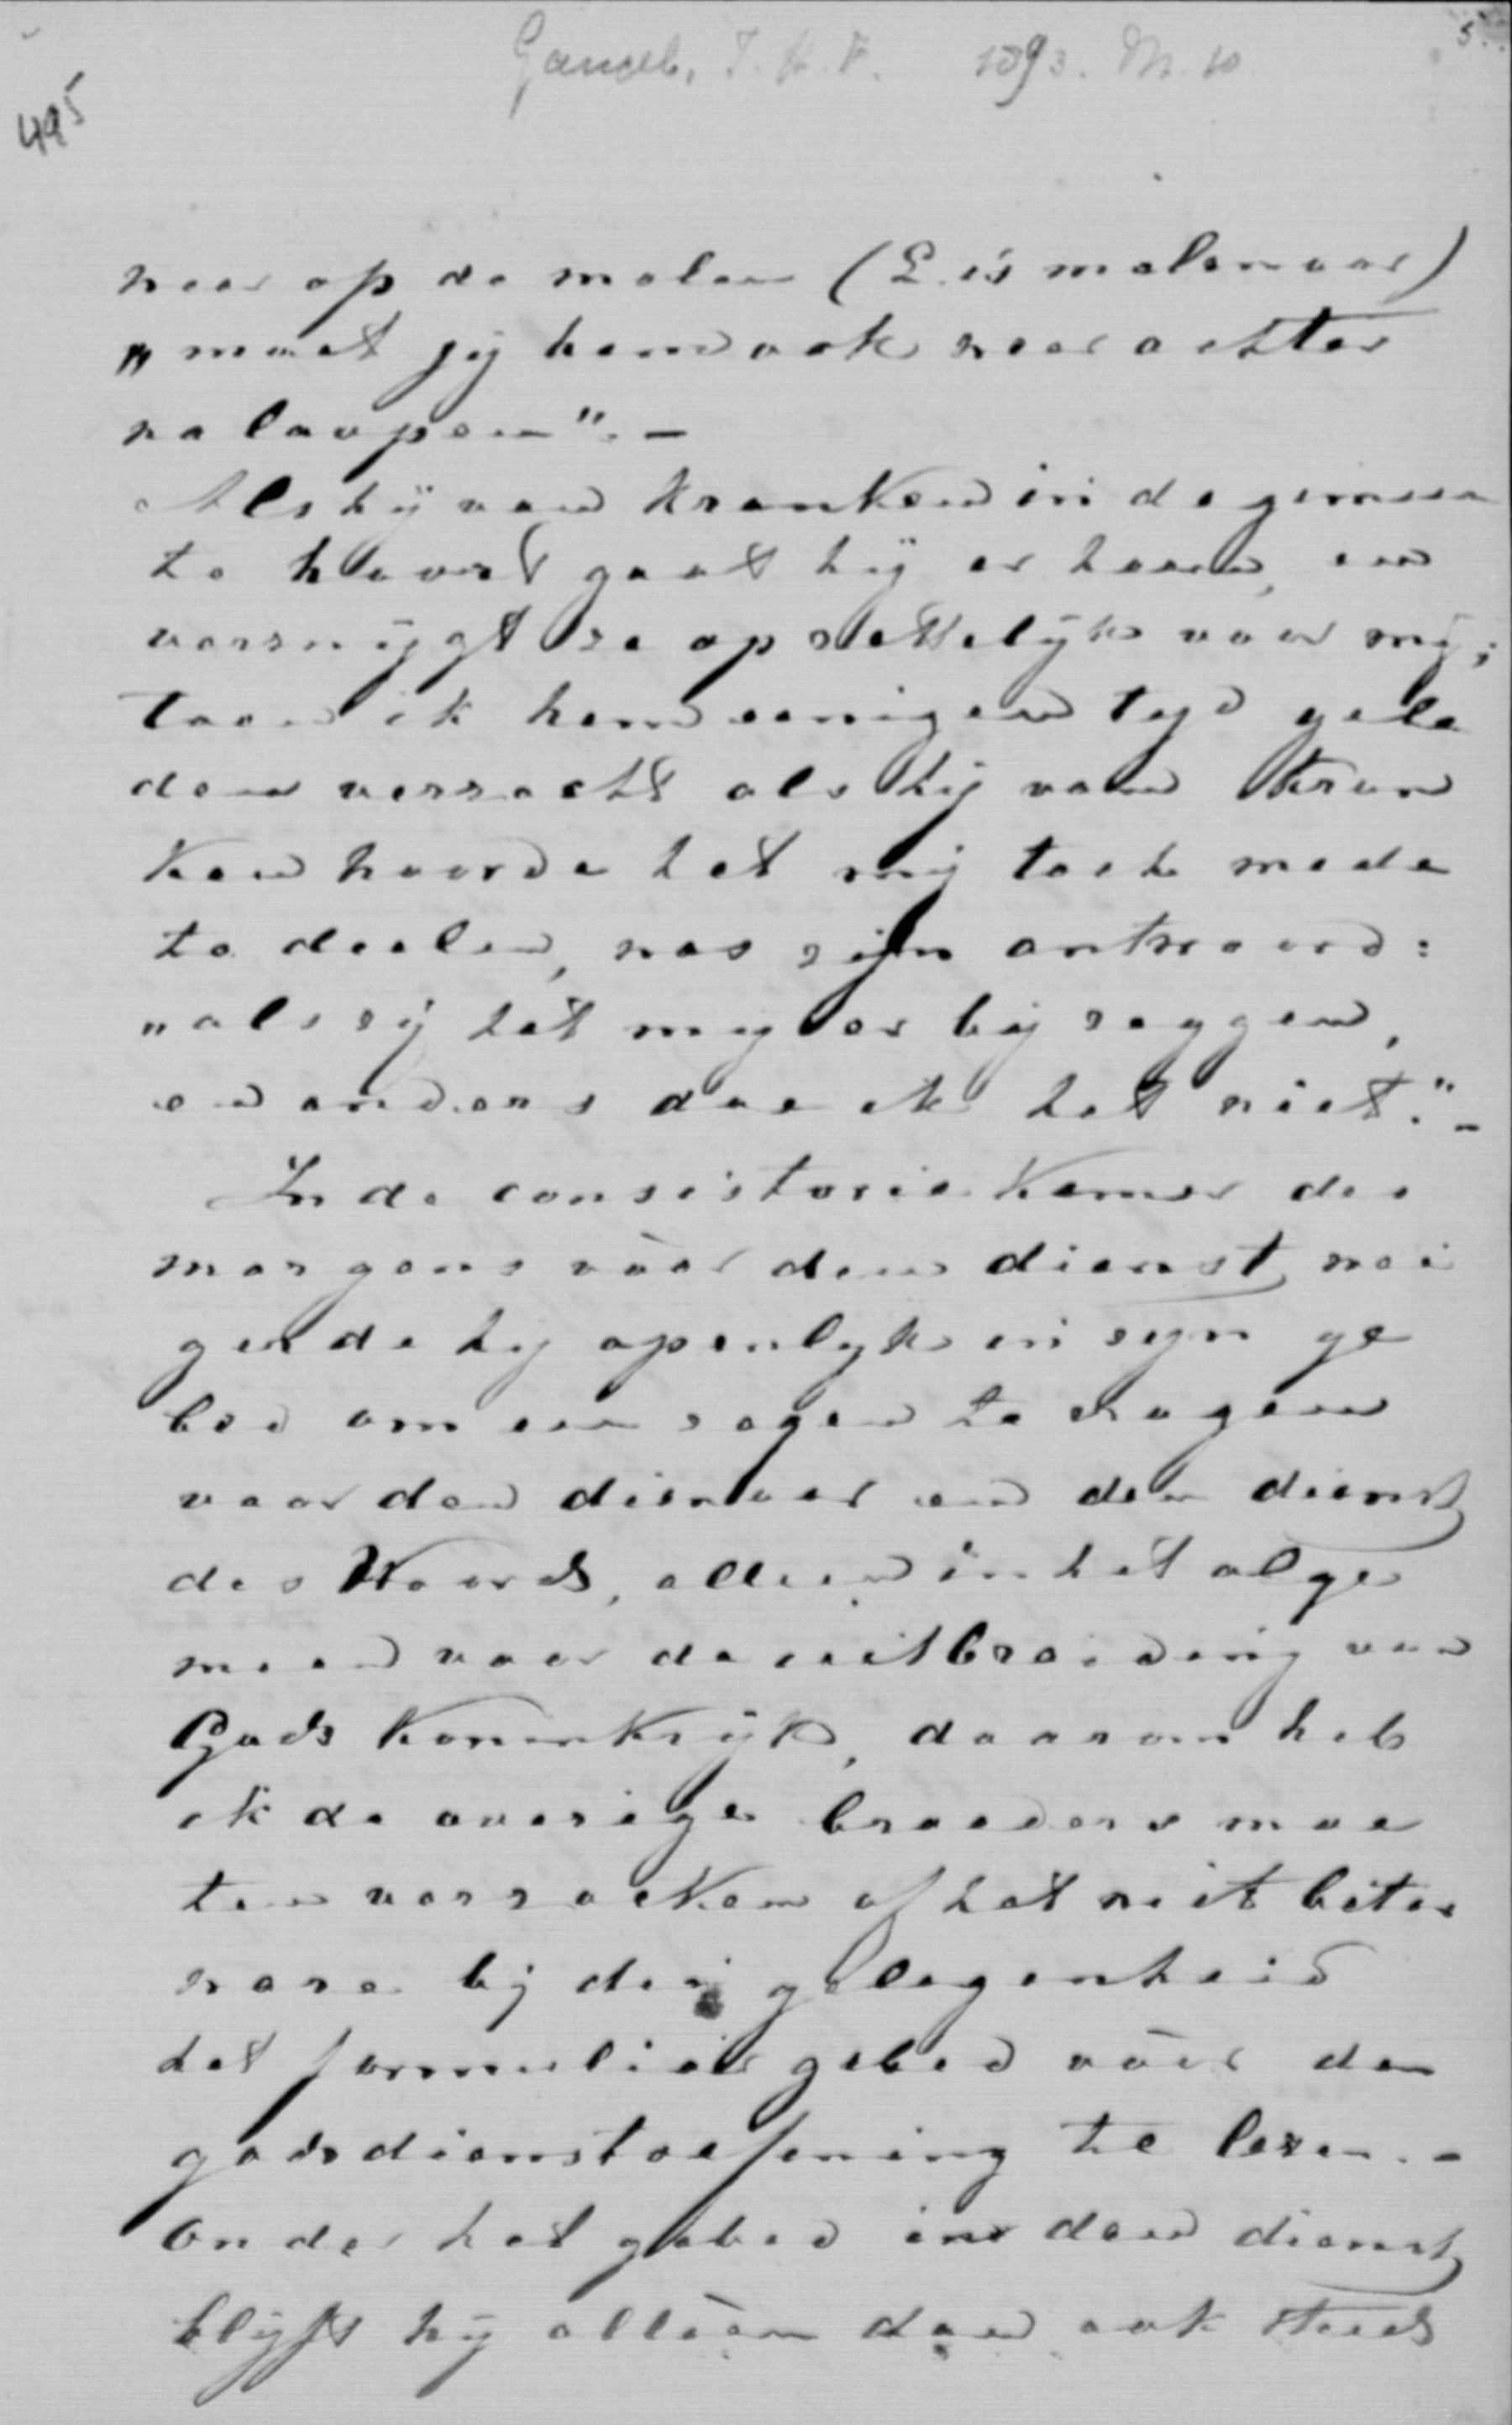 Gangel, J. H. F. 1893. M. 10
5
495
weer op de molen (E. is molenaar)
„moet jij hem ook weer achter
na loopen”. –
Als hij van kranken in de gemeen
te hoort gaat hij er heen, en
verzwijgt ze opzettelijk voor mij;
toen ik hem eenigen tijd gele
den verzocht als hij van kran
ken hoorde het mij toch mede
te deelen, was zijn antwoord:
„als zij het mij er bij zeggen,
en anders doe ik het niet.” –
In de consistorie kamer des
morgens vòòr den dienst wei
gerde hij openlijk in zijn ge
bed om een zegen te vragen
voor den dienaar en den dienst
des Woords, alleen in het alge
meen voor de uitbreiding van
Gods Koninkrijk, daarom heb
ik de overige broeders moe
ten verzoeken of het niet beter
ware bij die gelegenheid
het formulier gebed vòòr den
godsdienstoefening te lezen. –
Onder het gebed in den dienst
blijft hij alléén dan ook steeds